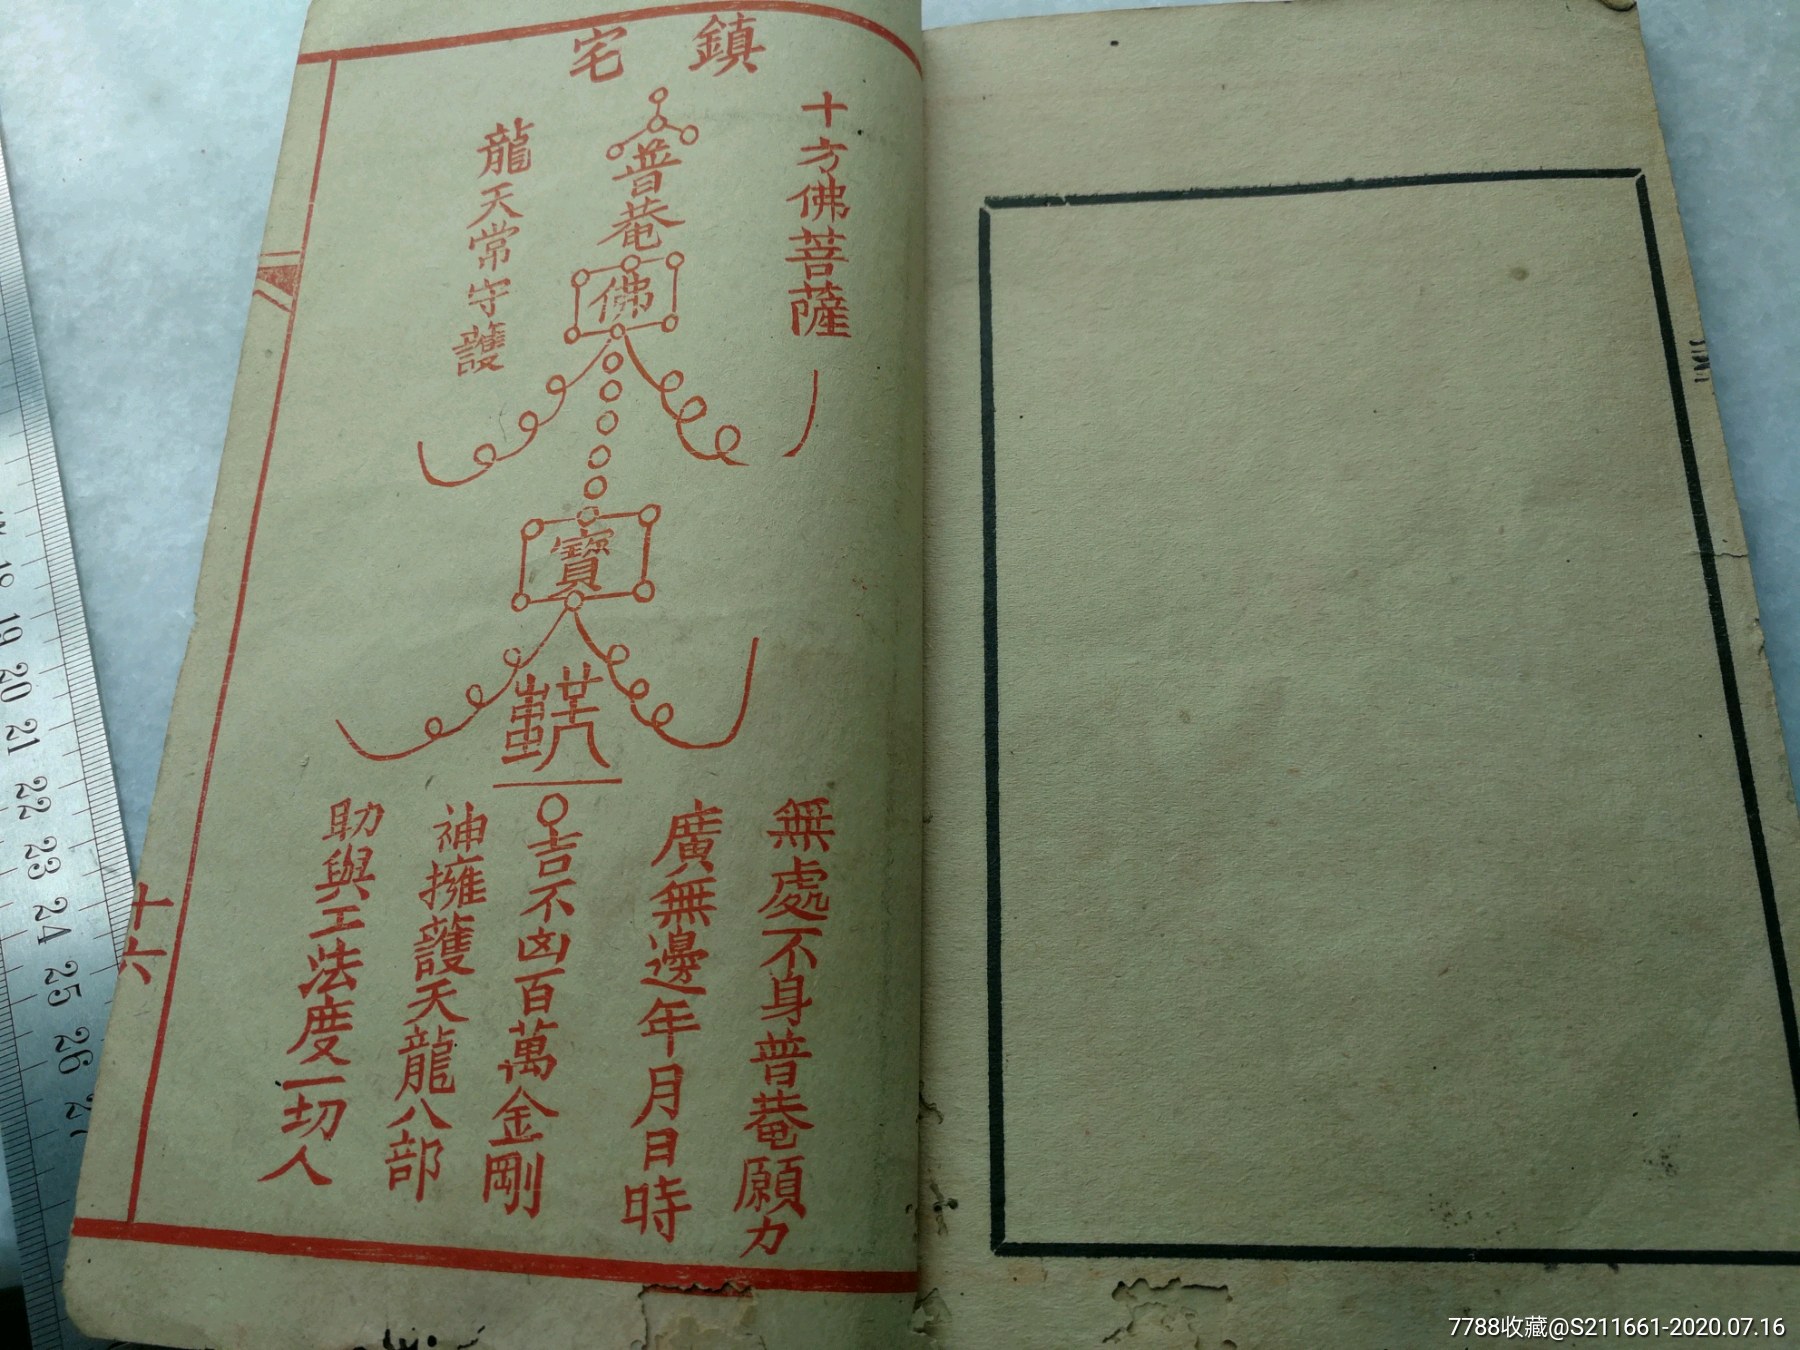 鎮宅
十方佛菩薩
普菴
佛
寶
龍天常守䕶
無處不身普菴願力
廣無邊年月日時
吉不凶百萬金剛
神擁䕶天龍八部
助與工法度一切人
十六
19 20 21 22 23 24 25 26
7788收藏@S211661-2020.07.16